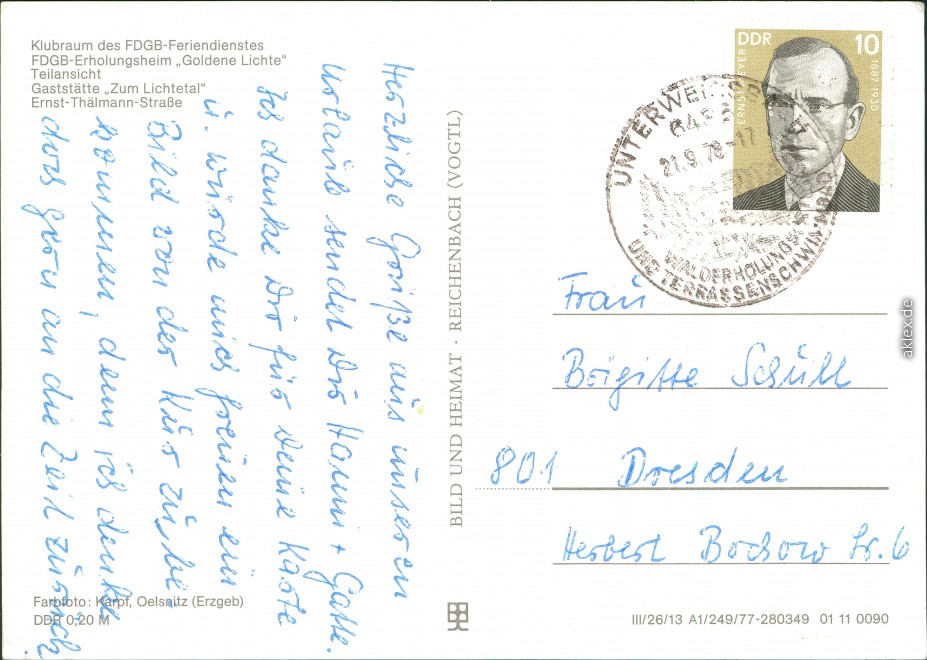 Klubraum des FDGB-Feriendienstes
FDGB-Erholungsheim „Goldene Lichte“
Teilansicht
Gaststätte „Zum Lichtetal“
Ernst-Thälmann-Straße
Herzliche Grüße aus unserem
Urlaub sendet Dir Hanni + Gatte.
Ich danke Dir für Deine Karte
u. würde mich freuen ein
Bild von der Kur zu be-
kommen, denn ich denke
doch gern an die Zeit zurück.
Farbfoto: Karpf, Oelsnitz (Erzgeb)
DDR 0,20 M
BILD UND HEIMAT · REICHENBACH (VOGTL)
DDR 10
1887-1930
UNTERWEISSBACH
21.9.78-17
WALDERHOLUNGS
UND TERRASSENSCHWIMMBAD
Frau
Brigitte Schull
801 Dresden
Herbert Bochow Str. 6
III/26/13 A1/249/77-280349 01 11 0090
aklex.de